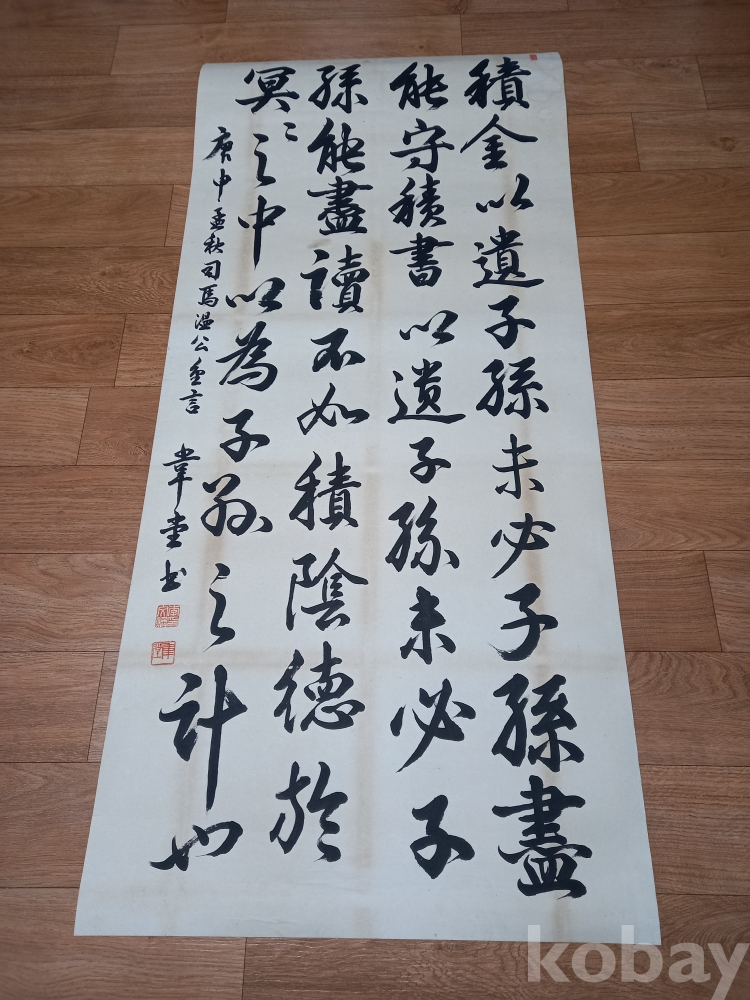 積金以遺子孫未必子孫盡
能守積書以遺子孫未必子
孫能盡讀不如積陰德於
冥〻之中以為子孫之計也
庚申孟秋司馬温公金言 韋堂书
kobay